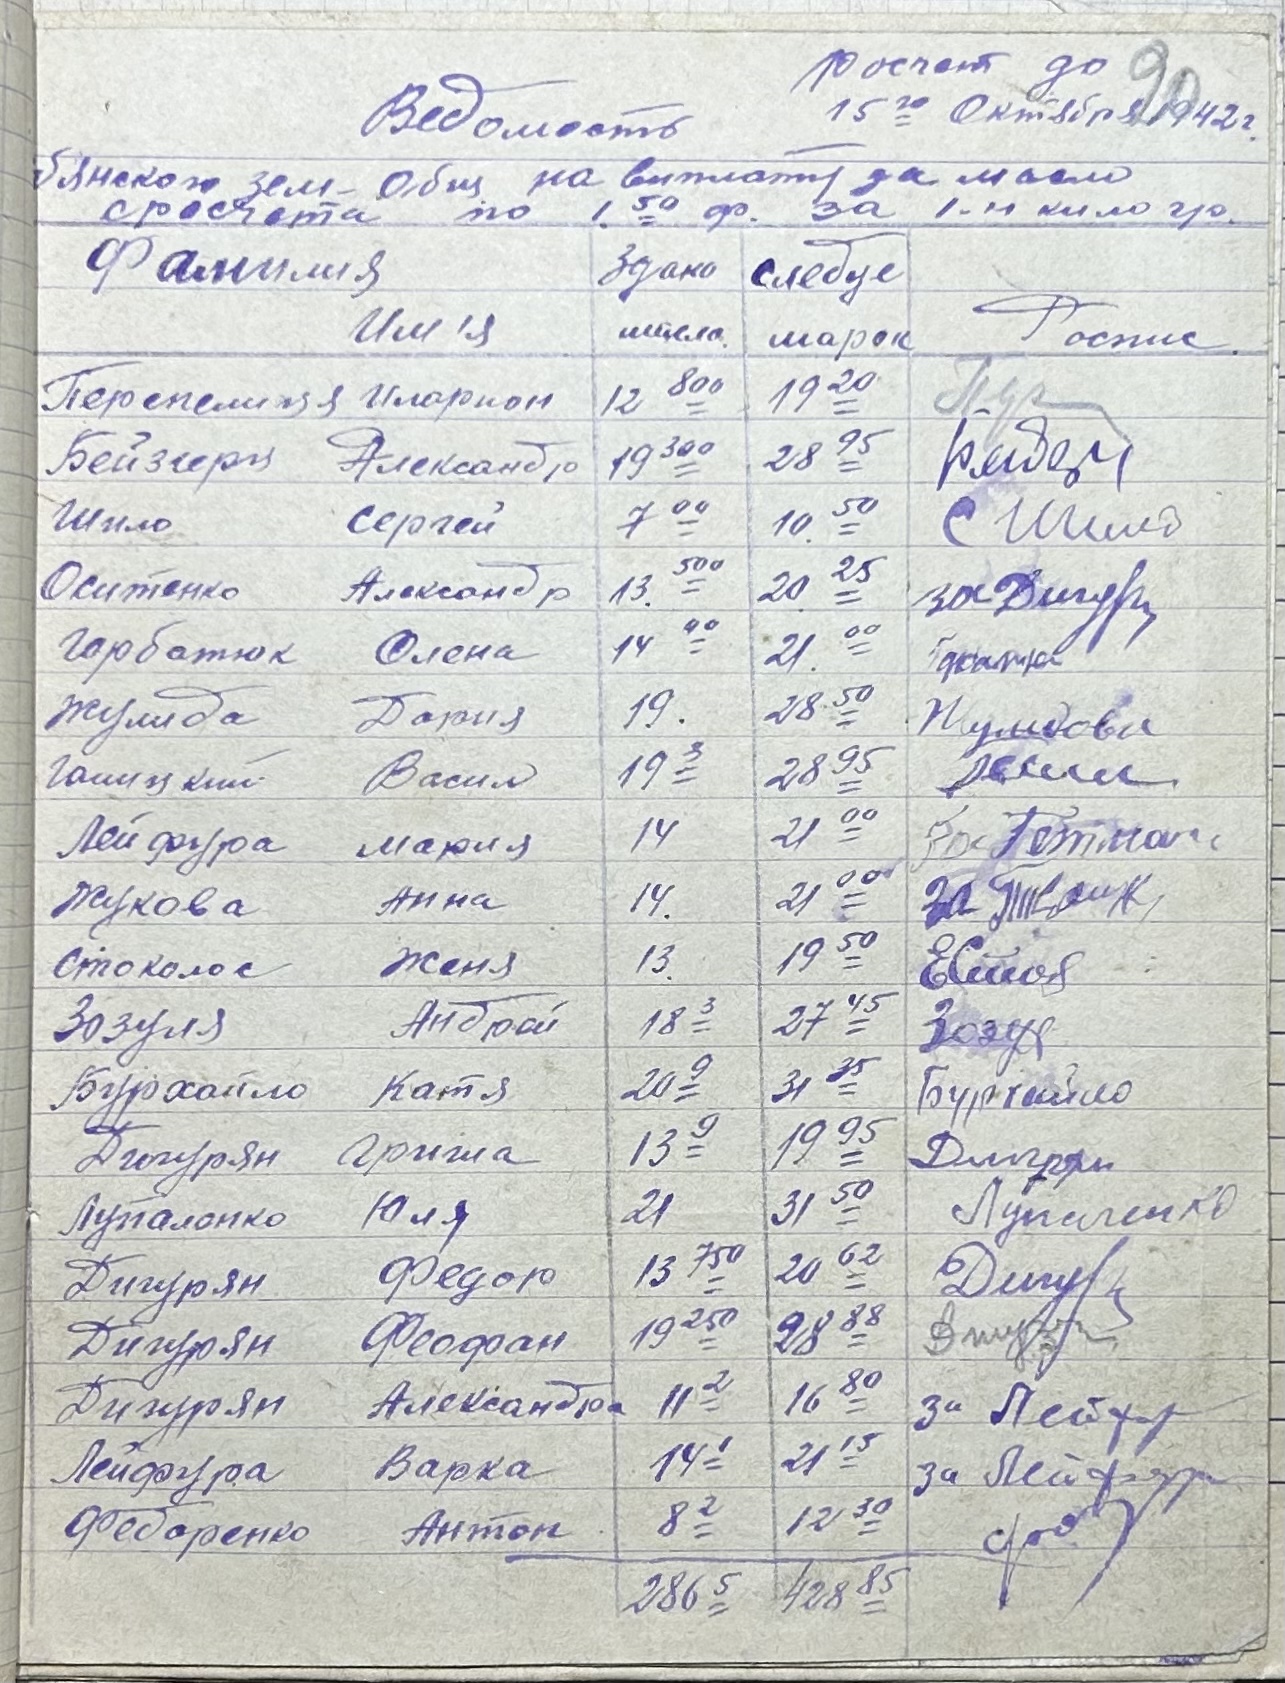 90
росчет до
15го Октября 1942 г.
Ведомость
бянского зем- Общ на виплату за масло
сросчета по 1.50 ф. за 1-н кило гр.
Фамилия Здано следуе
Им'я масла. марок Роспис.
Перепелиця Иларион 12 800 19 20
Бейзгерц Александр 19 300 28 95
Шило Сергей 7 00 10. 50 С Шило
Осипенко Александр 13. 500 20 25 за Дигур
Горбатюк Олена 14 00 21. 00
Жулиба Дария 19. 28 50 Жулибова
Галицкий Васил 19 3 28 95
Лейфура Мария 14 21 00 За Гетман
Жукова Анна 14. 21 00 За
Стоколос Женя 13. 19 50 ЕСток
Зозуля Андрой 18 3 27 45 Зозуля
Бурхайло Катя 20 9 31 35 Бурхайло
Дигурян Гриша 13 9 19 95 Дигурян
Лупаленко Юля 21 31 50 Лупаленко
Дигурян Федор 13 750 20 62 Дигур
Дигурян Феофан 19 250 28 88 Дигур
Дигурян Александра 11 2 16 80 за Лейфур
Лейфура Варка 14 1 21 15 за Лейфура
Федоренко Антон 8 2 12 30
286 5 428 85